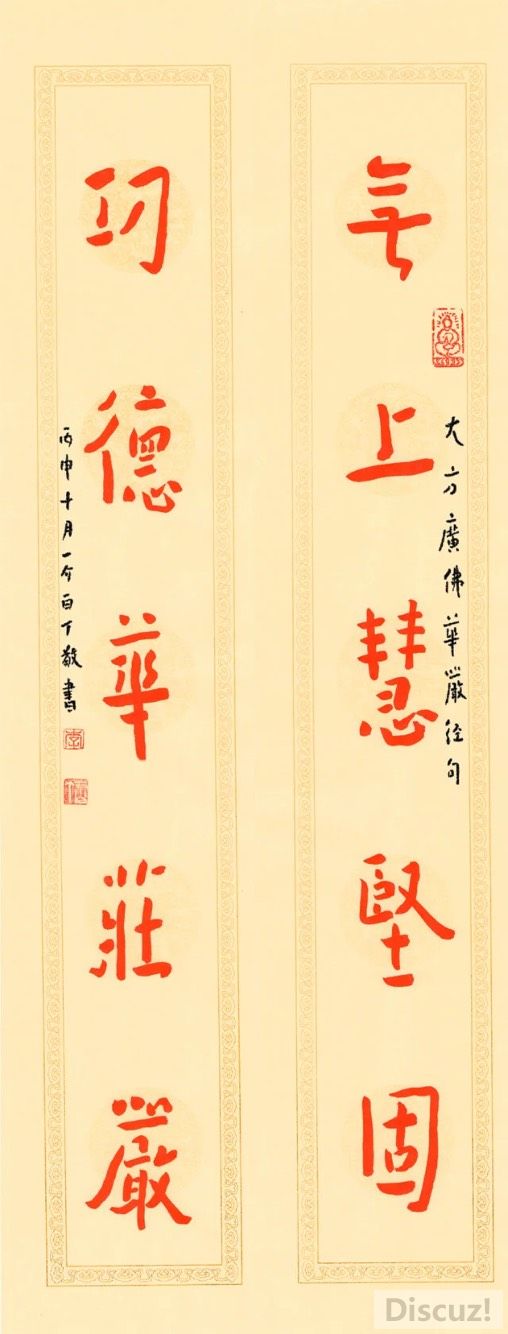 無上慧堅固
大方廣佛華嚴經句
功德華莊嚴
丙申十月一介白丁敬書
Discuz!